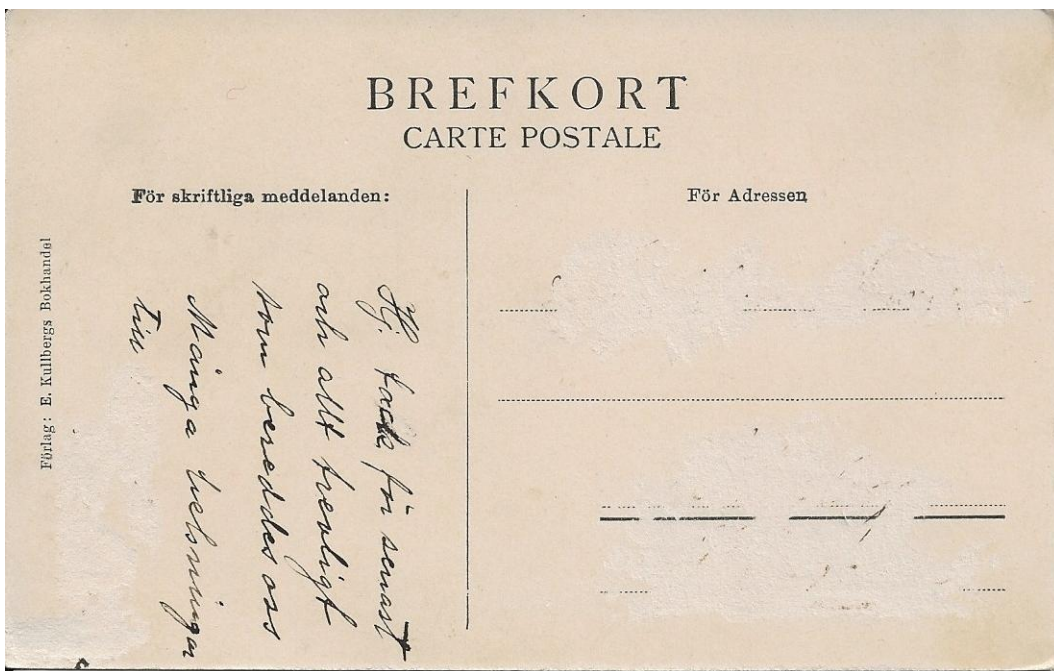 BREFKORT
CARTE POSTALE
För skriftliga meddelanden:
För Adressen
Förlag: E. Kullbergs Bokhandel
Hj. tack för senast
och allt trevligt
som bereddes oss
Många helsningar
till